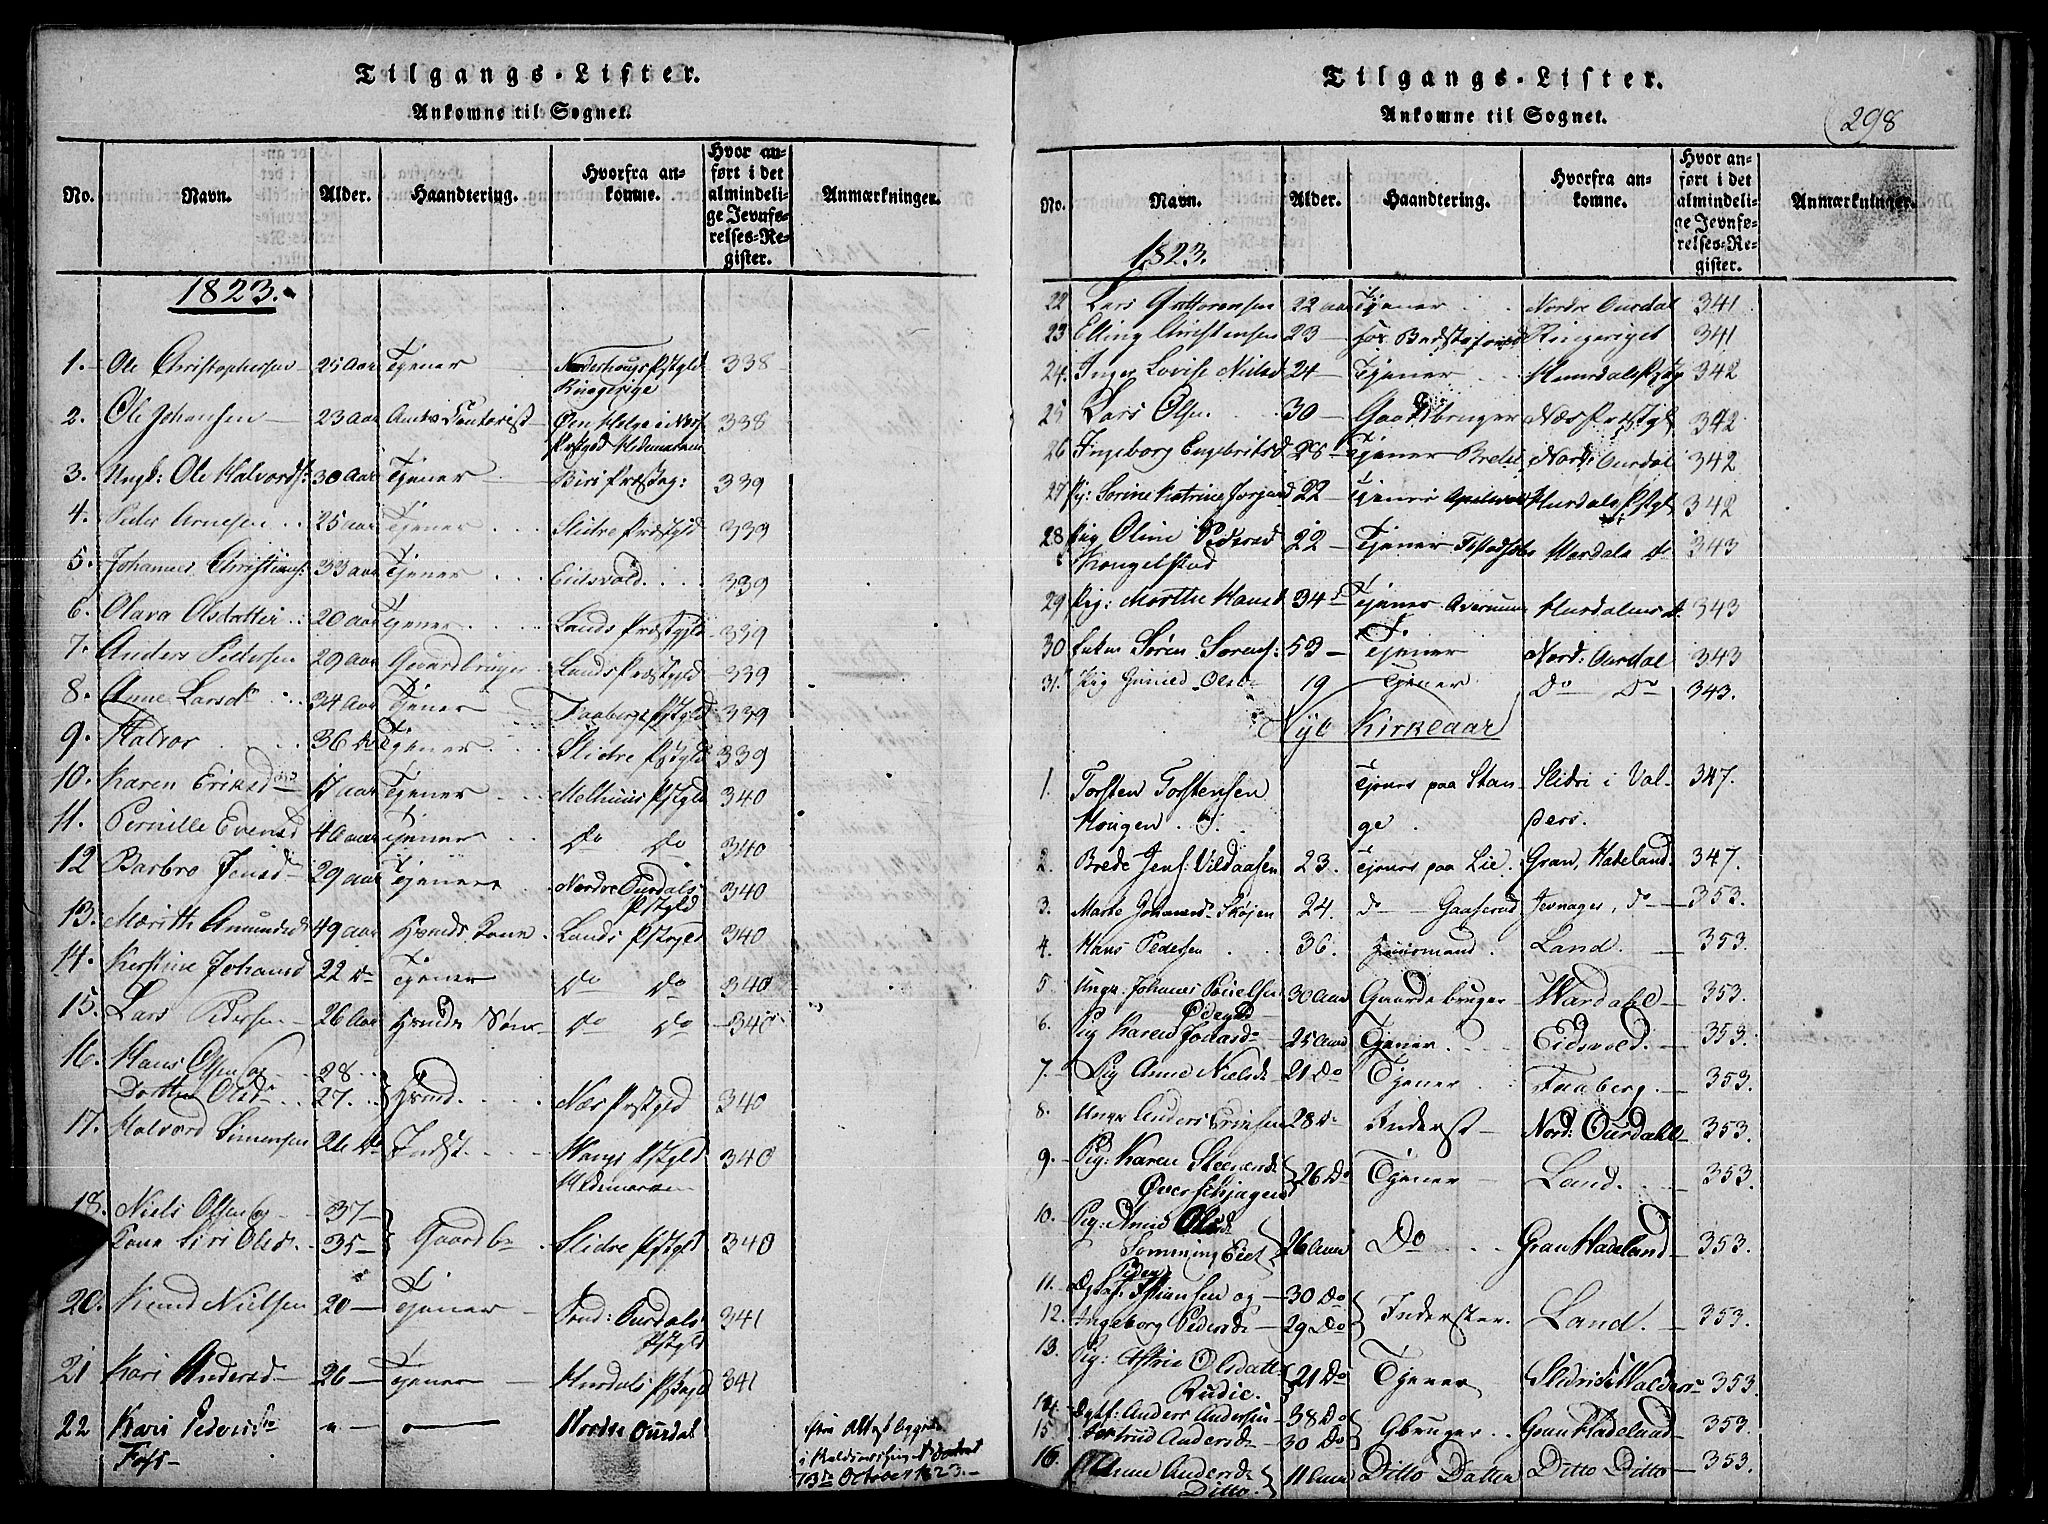 Tilgangs-Lister.
Ankomne til Sognet.
No. Navn. Alder. Haandtering. Hvorfra ankomne. Hvor anført i det almindelige Jevnførelses-Register. Anmærkninger.
1823.
1. Ole Christophersen 25 Aar Tjener Norderhougs Pstgld 338
Ringerige
2. Ole Johansen 23 Aar Amts Contorist Øen Helge i Næs 338
Pstgld Hedemarken
3. Ungk: Ole Halvords: 30 Aar Tjener Biri Præstg: 339
4. Peder Arnesen 25 Aar Tjener Slidre Præstgld 339
5. Johannes Christians: 33 Aar Tjener Eidsvold 339
6. Olava Olsdatter 20 Aar Tjener Lands Præstgld 339
7. Anders Pedersen 29 Aar Gaardbruger Lands Præstgld 339
8. Anne Larsdr 34 Aar Tjener Faabergs Pstgld 339
9. Halvor 36 do Tjener Slidre Pstgld 339
10. Karen Eriksd 17 aar Tjener Melhuus Pstgld 340
11. Pernille Evensd 40 aar Tjener do do 340
12 Barbro Jensd 29 aar Tjener Nordre Ourdals 340
Pstgld
13. Marith Amundsd 49 aar Hmds Kone Lands Pstgld 340
14. Kerstine Johansd 22 do Tjener do do 340
15. Lars Pedersen 26 Aar Hmds Søn do do 340
16. Hans Olsen og 28
Dorthe Olsdr 27. Hmd. Næs Pstgld 340
17. Halvord Simensen 26 do Indst. Vangs Pstgld 340
Hedemarken
18. Niels Olsen og 37
Kone Siri Olsd. 35 Gaardbr Slidre Pstgld 340
20. Knud Nielsen 20 Tjener Nord: Ourdals 341
Pstgld
21 Kari Andersd 26 Tjener Hurdals Pstgld 341
22 Kari Pedersdr " Nordre Ourdal
Foss
13de October 1823.
Tilgangs-Lister.
Ankomne til Sognet.
298
No. Navn. Alder. Haandtering. Hvorfra ankomne. Hvor anført i det almindelige Jevnførelses-Register. Anmærkninger.
1823.
22 Lars Guttormsen 22 aar Tjener Nordre Ourdal 341
23 Elling Christensen 23 Ringeriget 341
24. Inger Lovise Nilsd 24 Tjener Hurdals Pstgld 342
25 Lars Olsen 30 Gaardbruger Næs Præstgl 342
26 Ingeborg Engebritsd 28 Tjener Nord: Ourdal 342
27 Pig: Sorine Katrine Jorgensd 22 Tjener Hurdals Pstgl 342
28 Pig Oline Pedersd 22 Tjener Hurdals do 343
Kongelstad
29 Pig: Marthe Hansd 34 Tjener Hurdalens do 343
30 Enkm Søren Sorens: 53 Tjener Nord: Ourdal 343
31. Pig Gunild Olsdr 19 Tjener Do Do 343.
Nyt Kirkeaar
1. Torsten Torstensen Tjener paa Stan- Slidri i Val- 347.
Hougen ge ders.
2. Brede Jens: Vildaasen 23. Tjener paa Lie. Gran, Hadeland 347.
3. Marte Johannsdr Skøjen 24. do Gaaserud Jevnager, do 353.
4. Hans Pedersen 36. Huusmand Land. 353.
5. Ungk: Johannes Poulsen 30 Aar Gaardebruger Wardahl 353.
Ødegld
6. Pig Karen Jonasdr 25 Aar Tjener Eidsvold. 353.
7. Pig Anne Nielsdr 21 Do Tjener Faaberg. 353.
8. Ungk Anders 28 Do Inderst Nord: Ourdahl 353.
9. Pig: Karen Steensdr 26 Do Tjener Land. 353.
10. Pig: Olsd
26 Aar Do Gran Hadeland 353.
11. og 30 Do
12. Ingeborg Pedersdr 29 Do Inderster. Land. 353.
13. Pig: Astrie Olsdatter 21 Do Tjener Slidri i Walders 353.
Rudie.
14. Anders Andersen 38 Do
15. Gertrud Andersdr 30 Do Gbruger Gran Hadeland 353.
16. Anne Andersdr 11 Aar Ditto Datter Ditto Ditto 353.
Ditto.